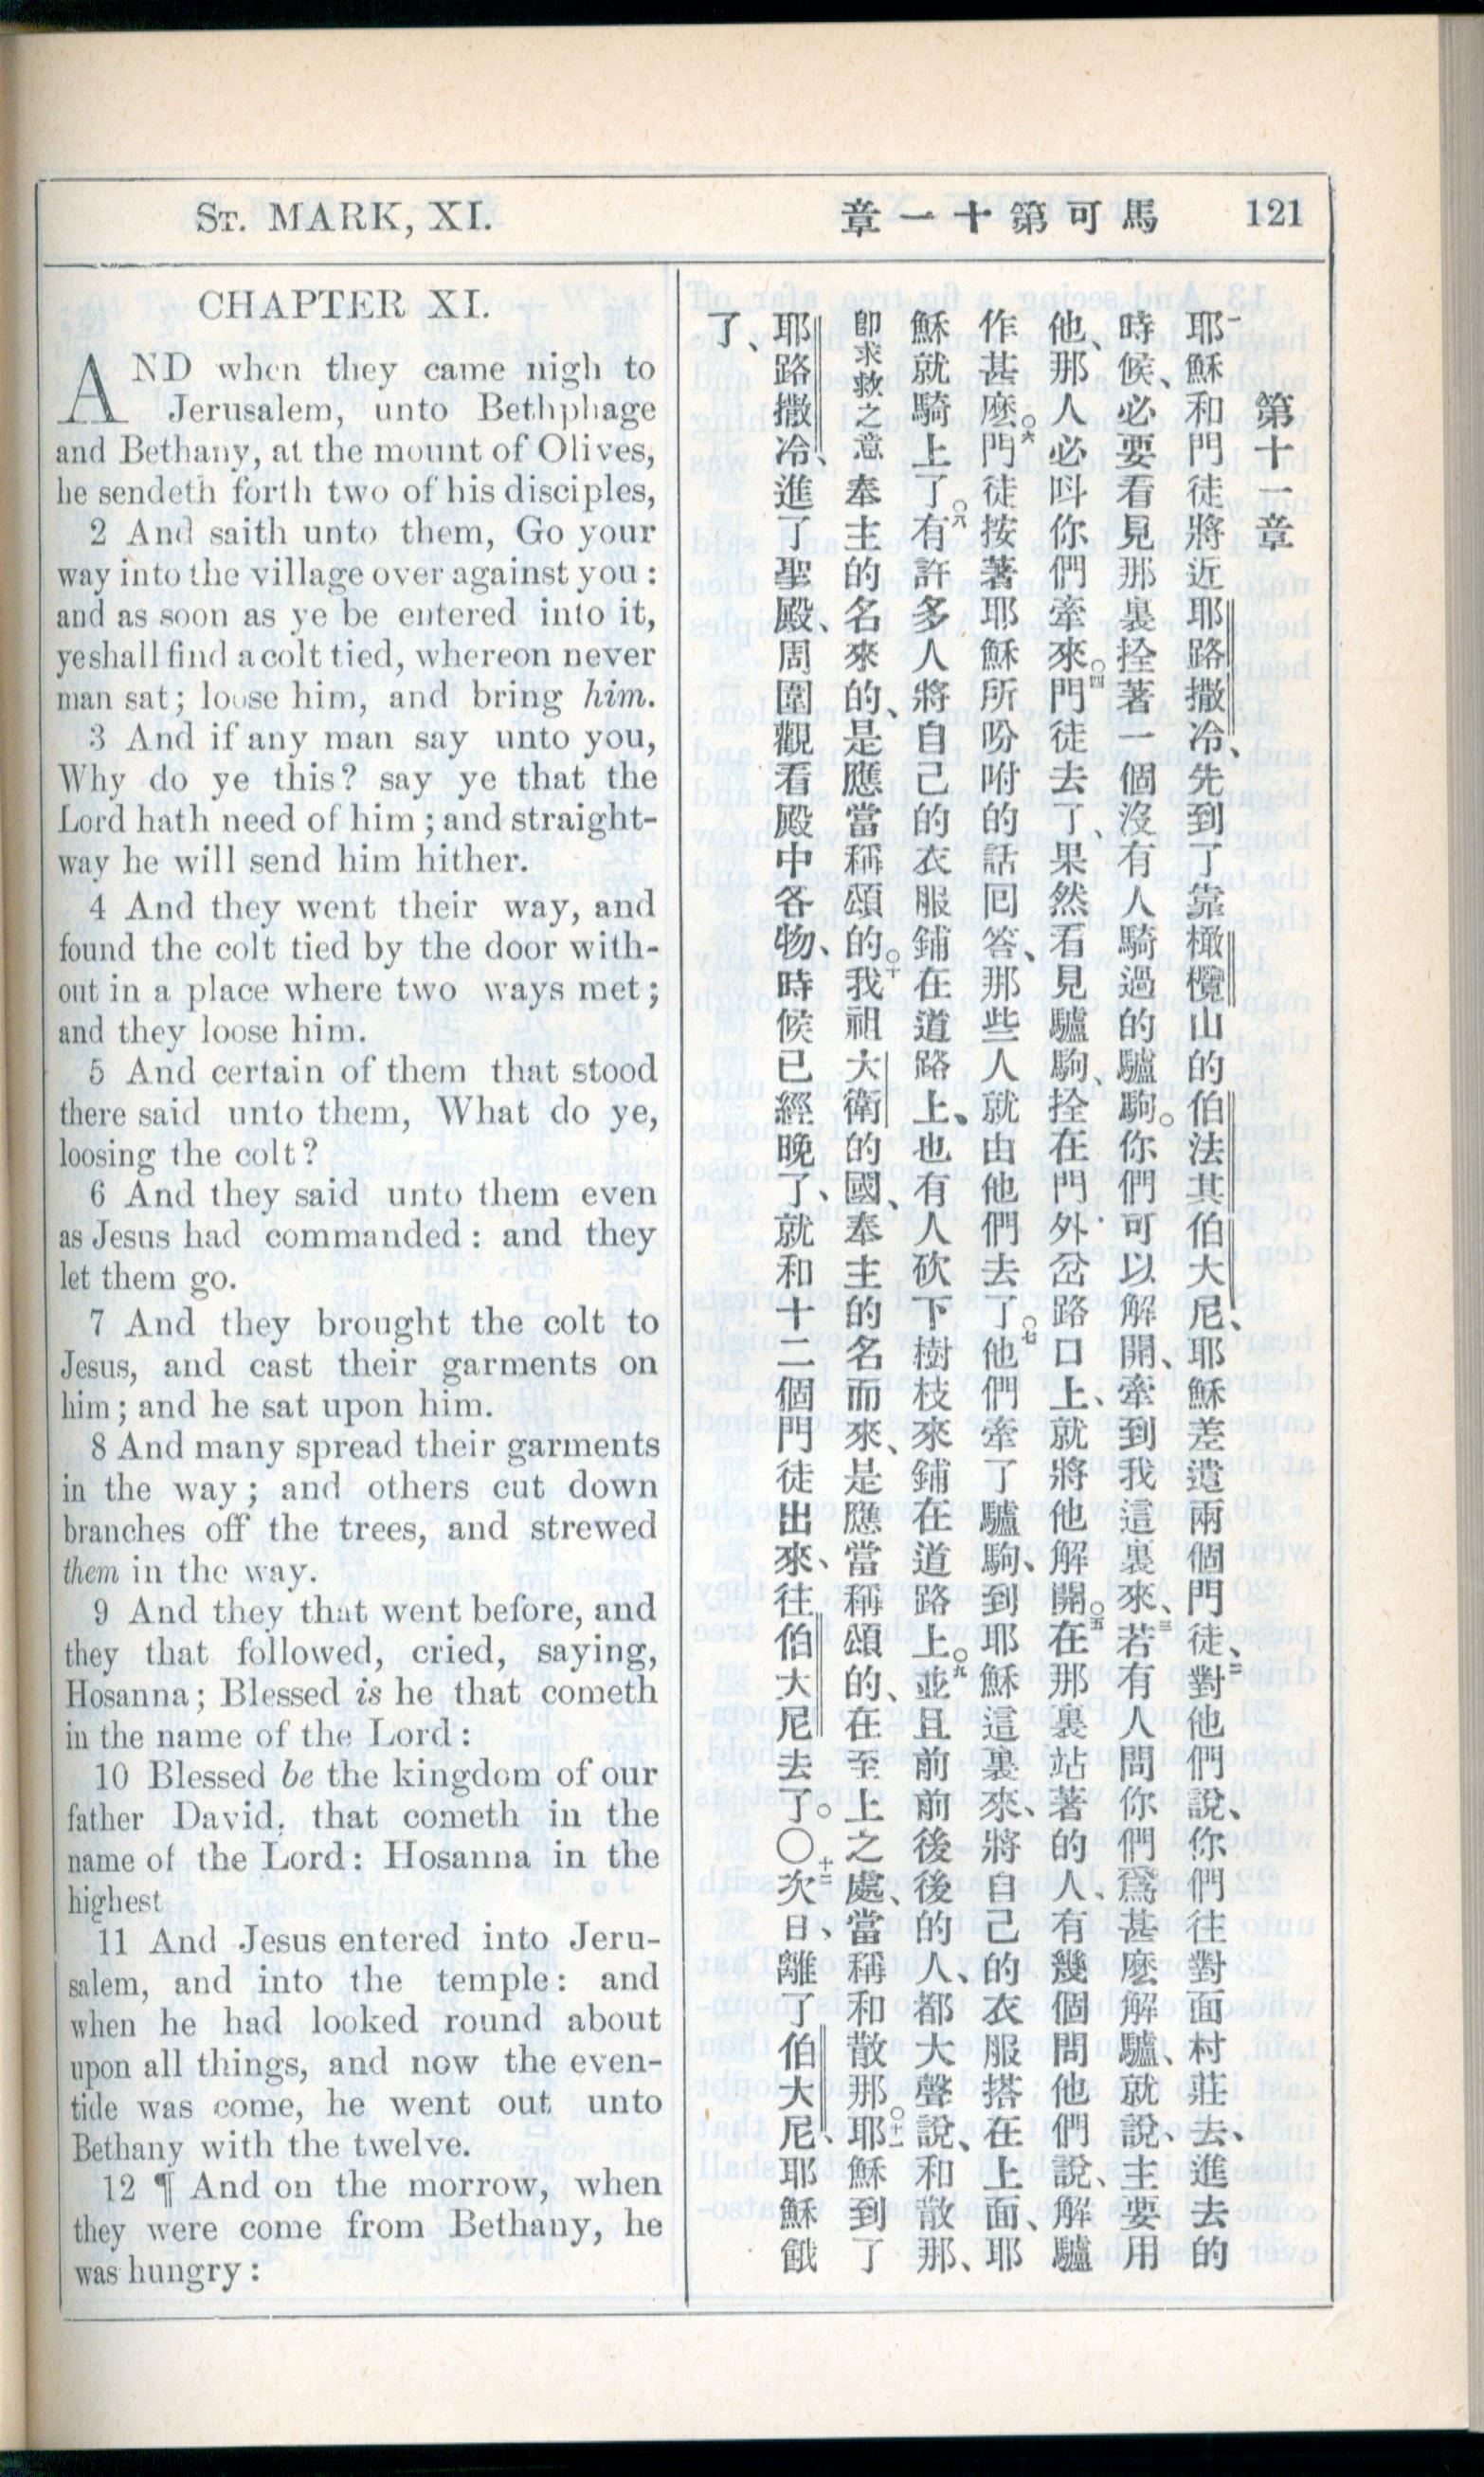 ST. MARK, XI.
章一十第可馬
121
CHAPTER XI.
AND when they came nigh to
Jerusalem, unto Bethphage
and Bethany, at the mount of Olives,
he sendeth forth two of his disciples,
2 And saith unto them, Go your
way into the village over against you:
and as soon as ye be entered into it,
ye shall find a colt tied, whereon never
man sat; loose him, and bring him.
3 And if any man say unto you,
Why do ye this? say ye that the
Lord hath need of him; and straight-
way he will send him hither.
4 And they went their way, and
found the colt tied by the door with-
out in a place where two ways met;
and they loose him.
5 And certain of them that stood
there said unto them, What do ye,
loosing the colt?
6 And they said unto them even
as Jesus had commanded: and they
let them go.
7 And they brought the colt to
Jesus, and cast their garments on
him; and he sat upon him.
8 And many spread their garments
in the way; and others cut down
branches off the trees, and strewed
them in the way.
9 And they that went before, and
they that followed, cried, saying,
Hosanna; Blessed is he that cometh
in the name of the Lord:
10 Blessed be the kingdom of our
father David, that cometh in the
name of the Lord: Hosanna in the
highest
11 And Jesus entered into Jeru-
salem, and into the temple: and
when he had looked round about
upon all things, and now the even-
tide was come, he went out unto
Bethany with the twelve.
12 ¶ And on the morrow, when
they were come from Bethany, he
was hungry:
第十一章
一耶穌和門徒將近耶路撒冷、先到了靠橄欖山的伯法其伯大尼、耶穌差遣兩個門徒、二對他們說、你們往對面村莊去、進去的
時候、必要看見那裏拴著一個沒有人騎過的驢駒。你們可以解開、牽到我這裏來、三若有人問你們爲甚麽解驢、就說、主要用
他、那人必呌你們牽來。四門徒去了、果然看見驢駒、拴在門外岔路口上、就將他解開。五在那裏站著的人、有幾個問他們說、解驢
作甚麽。六門徒按著耶穌所吩咐的話回答、那些人就由他們去了。七他們牽了驢駒、到耶穌這裏來、將自己的衣服搭在上面、耶
穌就騎上了。八有許多人將自己的衣服鋪在道路上、也有人砍下樹枝來鋪在道路上。九並且前前後後的人、都大聲說、和散那、
卽求救之意奉主的名來的、是應當稱頌的。十我祖大衛的國、奉主的名而來、是應當稱頌的、在至上之處、當稱和散那。十一耶穌到了
耶路撒冷、進了聖殿、周圍觀看殿中各物、時候已經晚了、就和十二個門徒出來、往伯大尼去了。〇十二次日、離了伯大尼、耶穌餓
了、